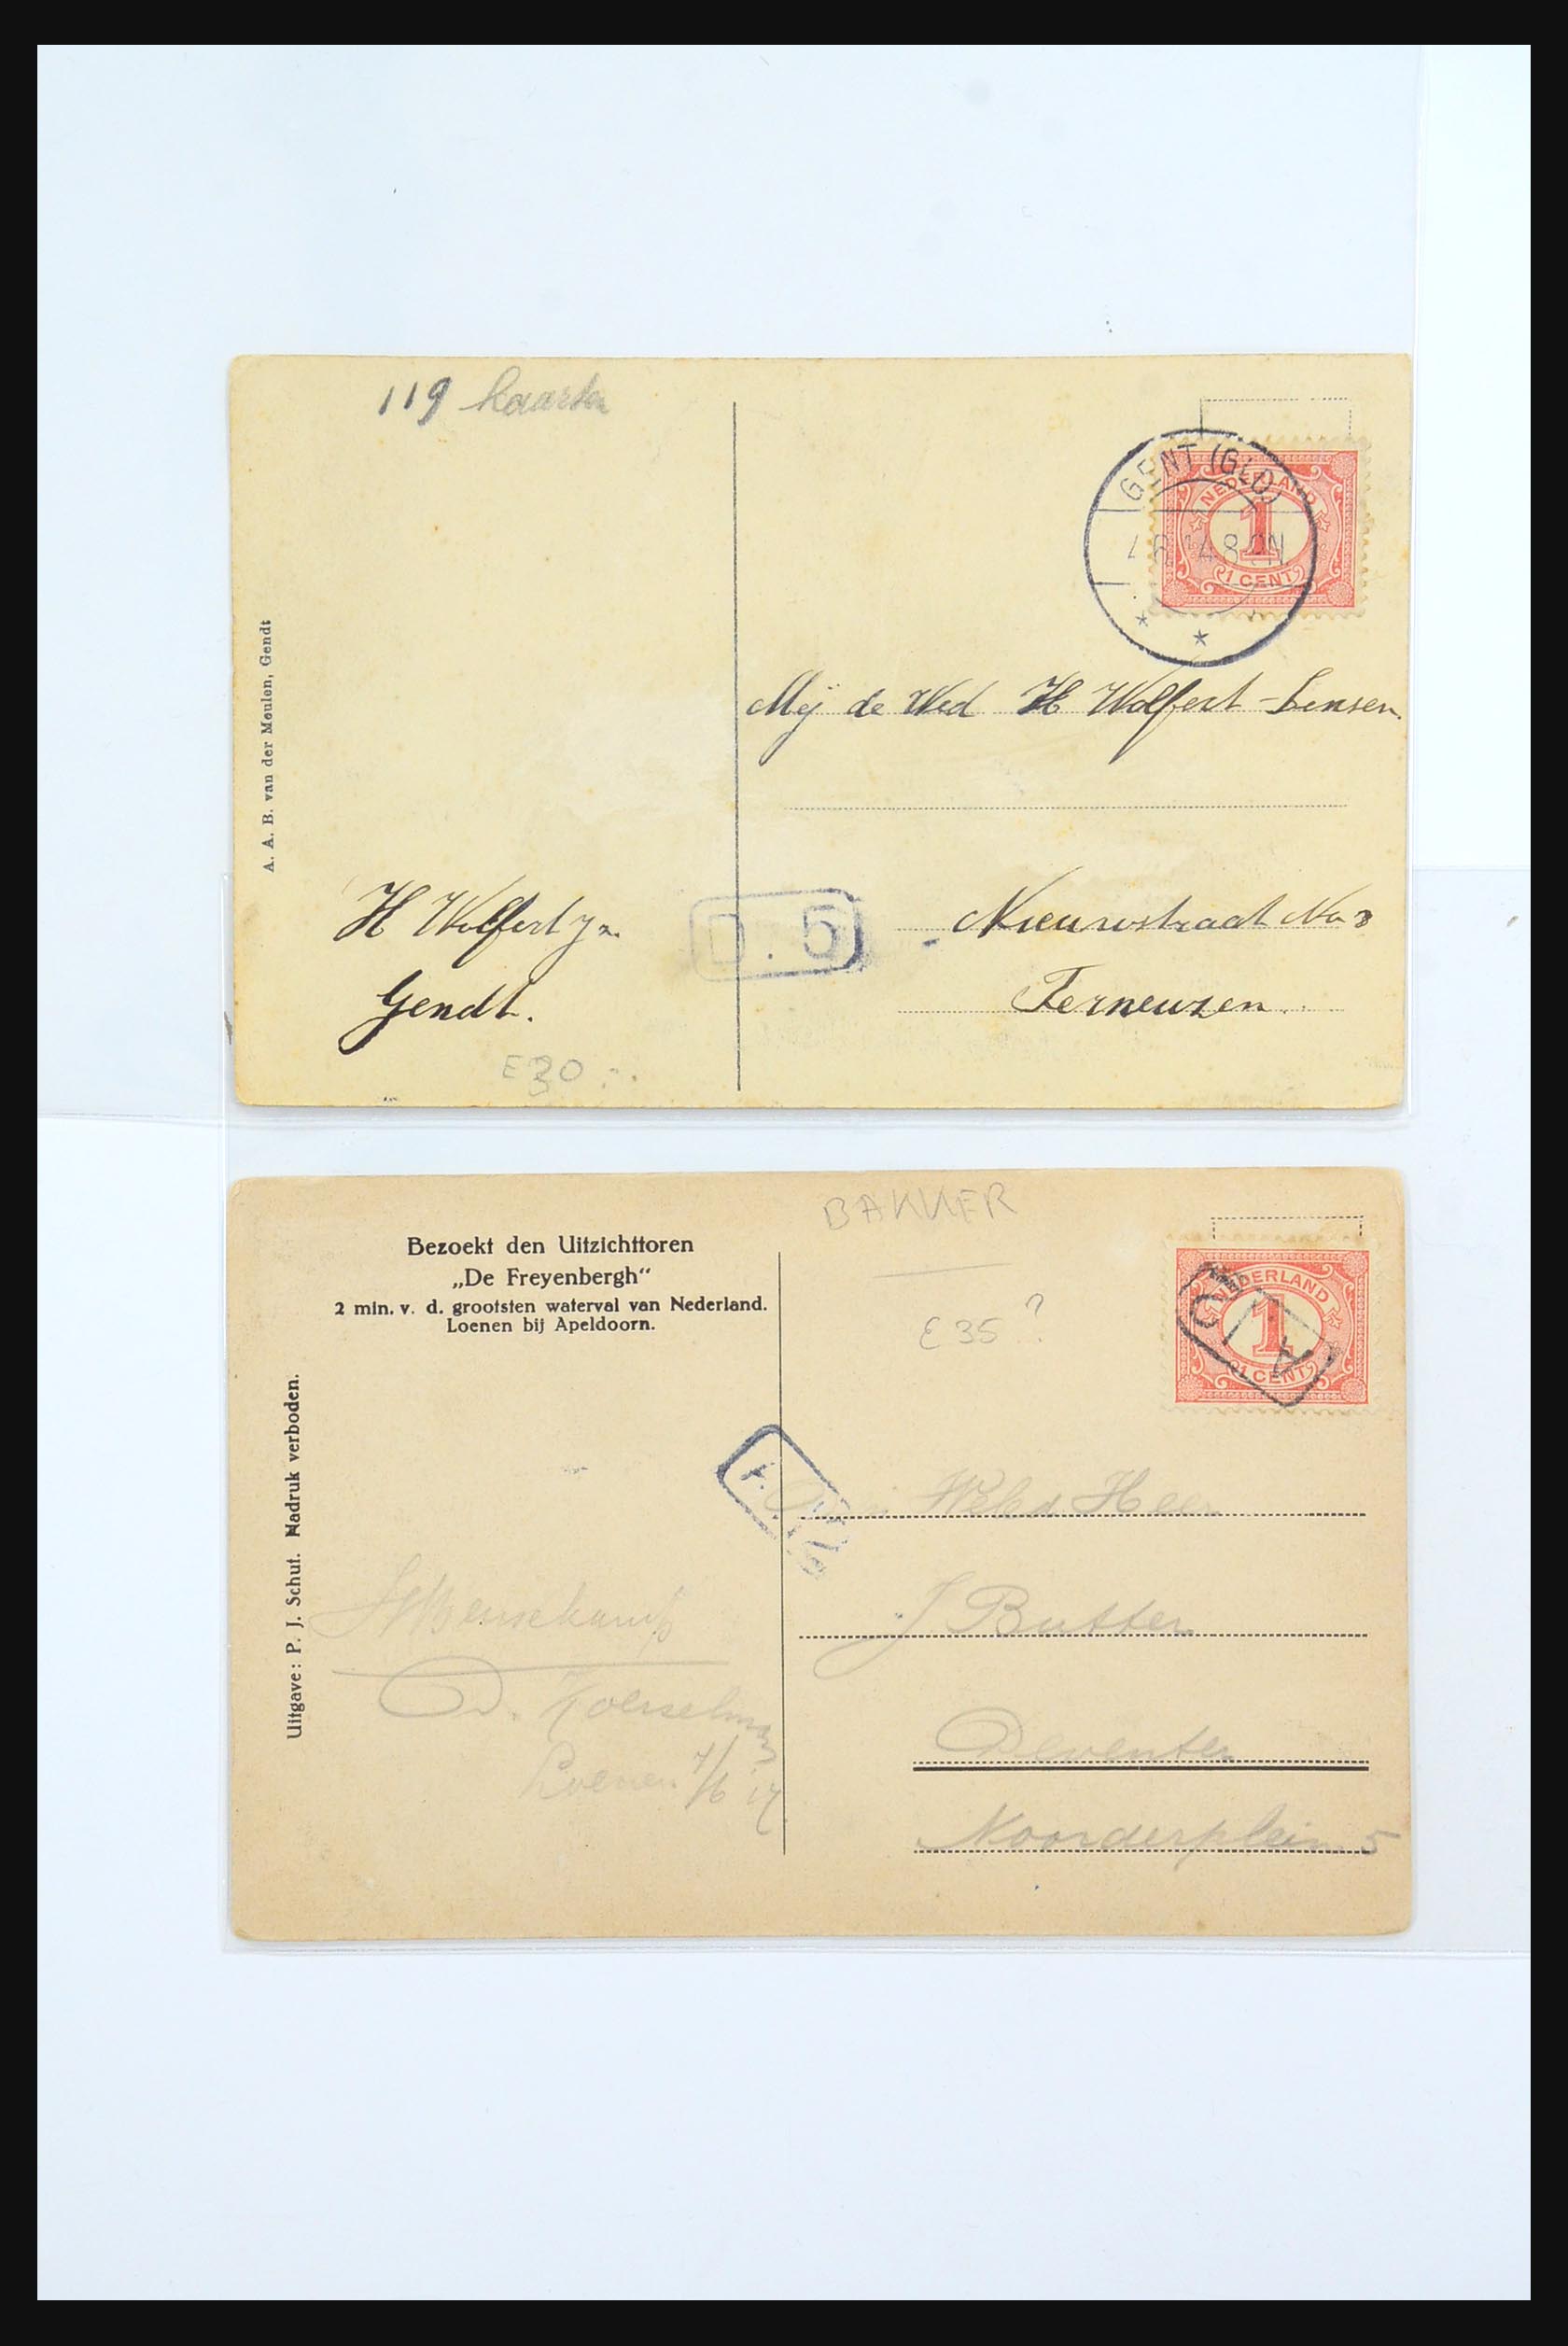 119 kaarten
GENT (GLD)
NEDERLAND
1
1 CENT
8-9N
A. A. B. van der Meulen, Gendt
Mej de Wed H Wolfert-Lensen
H Wolfert Jr.
D. 5
Nieuwstraat No 8
Gendt.
Terneuzen.
E 30
BAKKER
E 35 ?
Bezoekt den Uitzichttoren
„De Freyenbergh“
2 min. v. d. grootsten waterval van Nederland.
Loenen bij Apeldoorn.
NEDERLAND
1
1 CENT
Uitgave: P. J. Schut. Nadruk verboden.
Weled Heer
J. Butter
Deventer
Loenen 7/6 17
Noorderplein 5